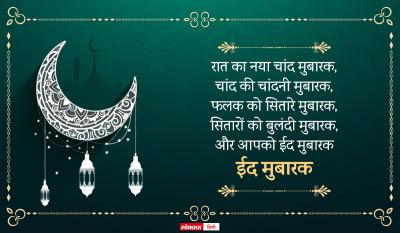 रात का नया चांद मुबारक,
चांद की चांदनी मुबारक,
फलक को सितारे मुबारक,
सितारों को बुलंदी मुबारक,
और आपको ईद मुबारक
ईद मुबारक
लोकमत हिन्दी